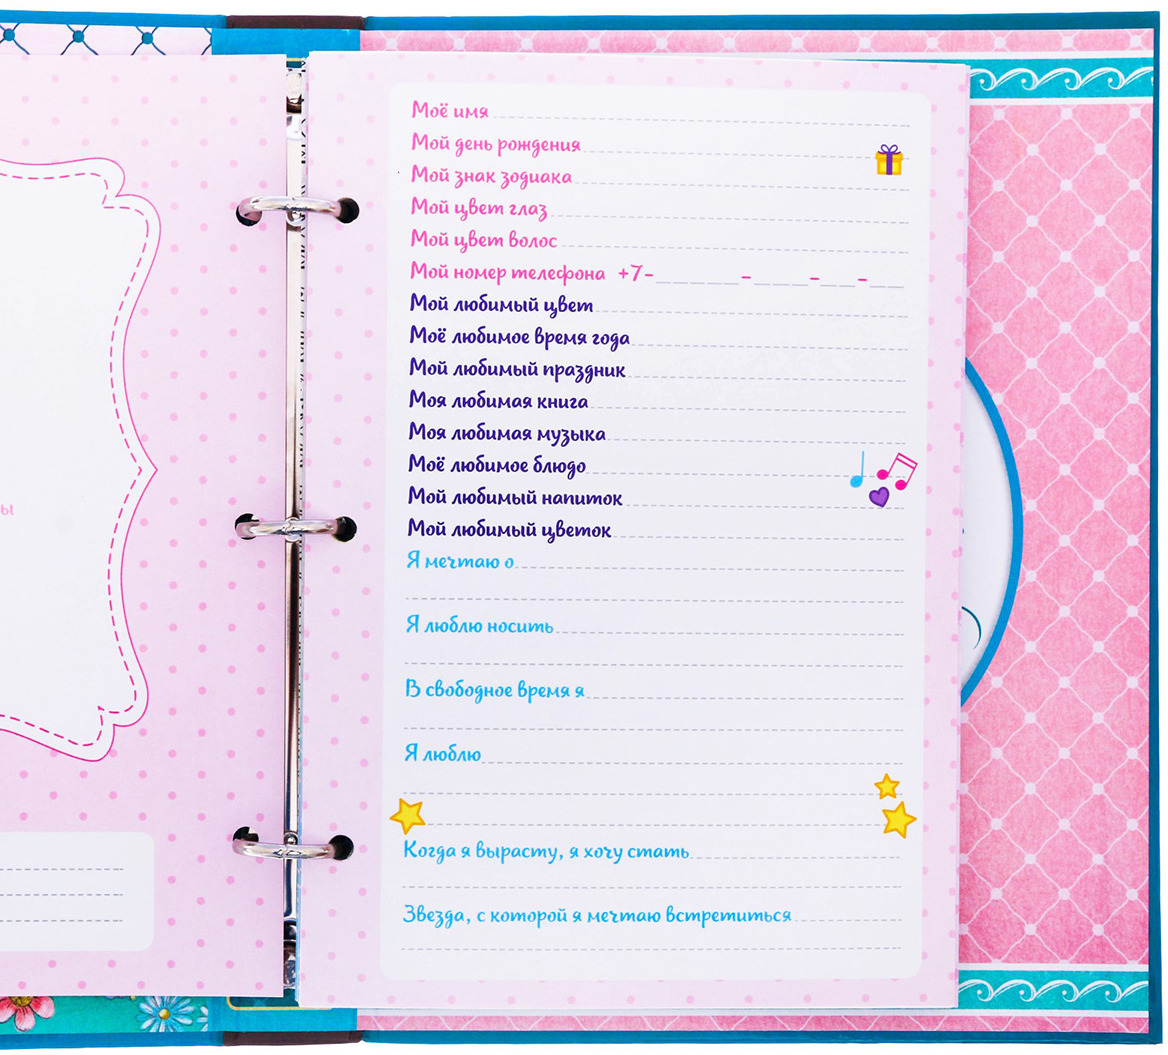 ы
Моё имя
Мой день рождения
Мой знак зодиака
Мой цвет глаз
Мой цвет волос
Мой номер телефона +7-
Мой любимый цвет
Моё любимое время года
Мой любимый праздник
Моя любимая книга
Моя любимая музыка
Моё любимое блюдо
Мой любимый напиток
Мой любимый цветок
Я мечтаю о
Я люблю носить
В свободное время я
Я люблю
Когда я вырасту, я хочу стать
Звезда, с которой я мечтаю встретиться